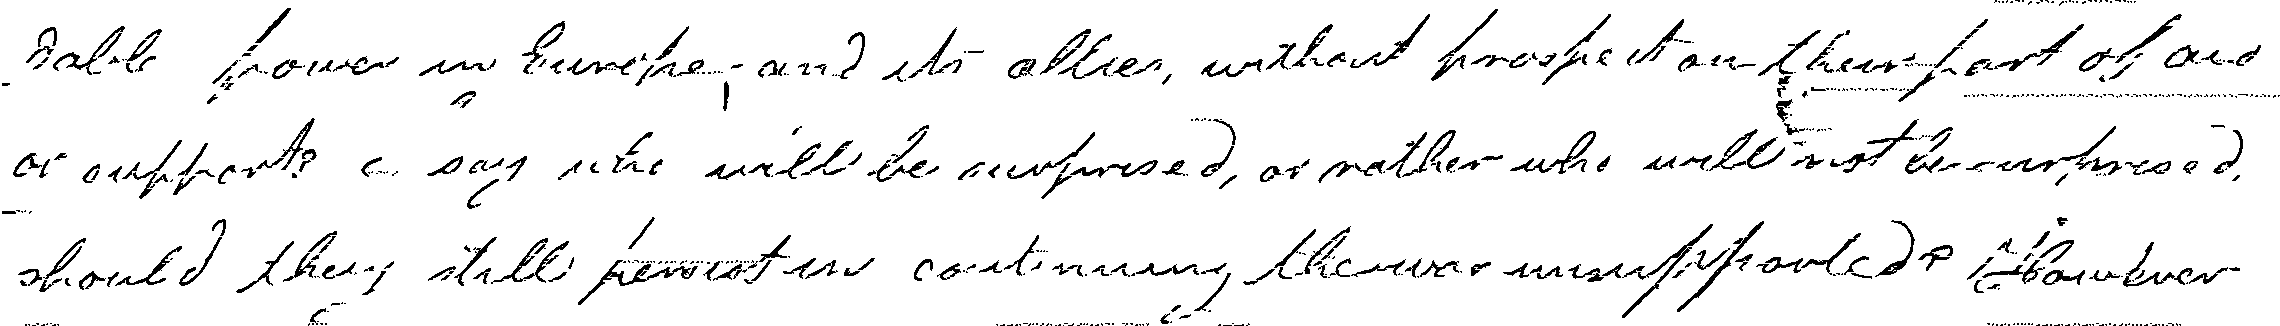 dable power in Europe; and its allies, without prospect on their part of aid
or support? I say who will be surprised, or rather who will not be surprised,
should they still persist in continuing the war unsupported? However